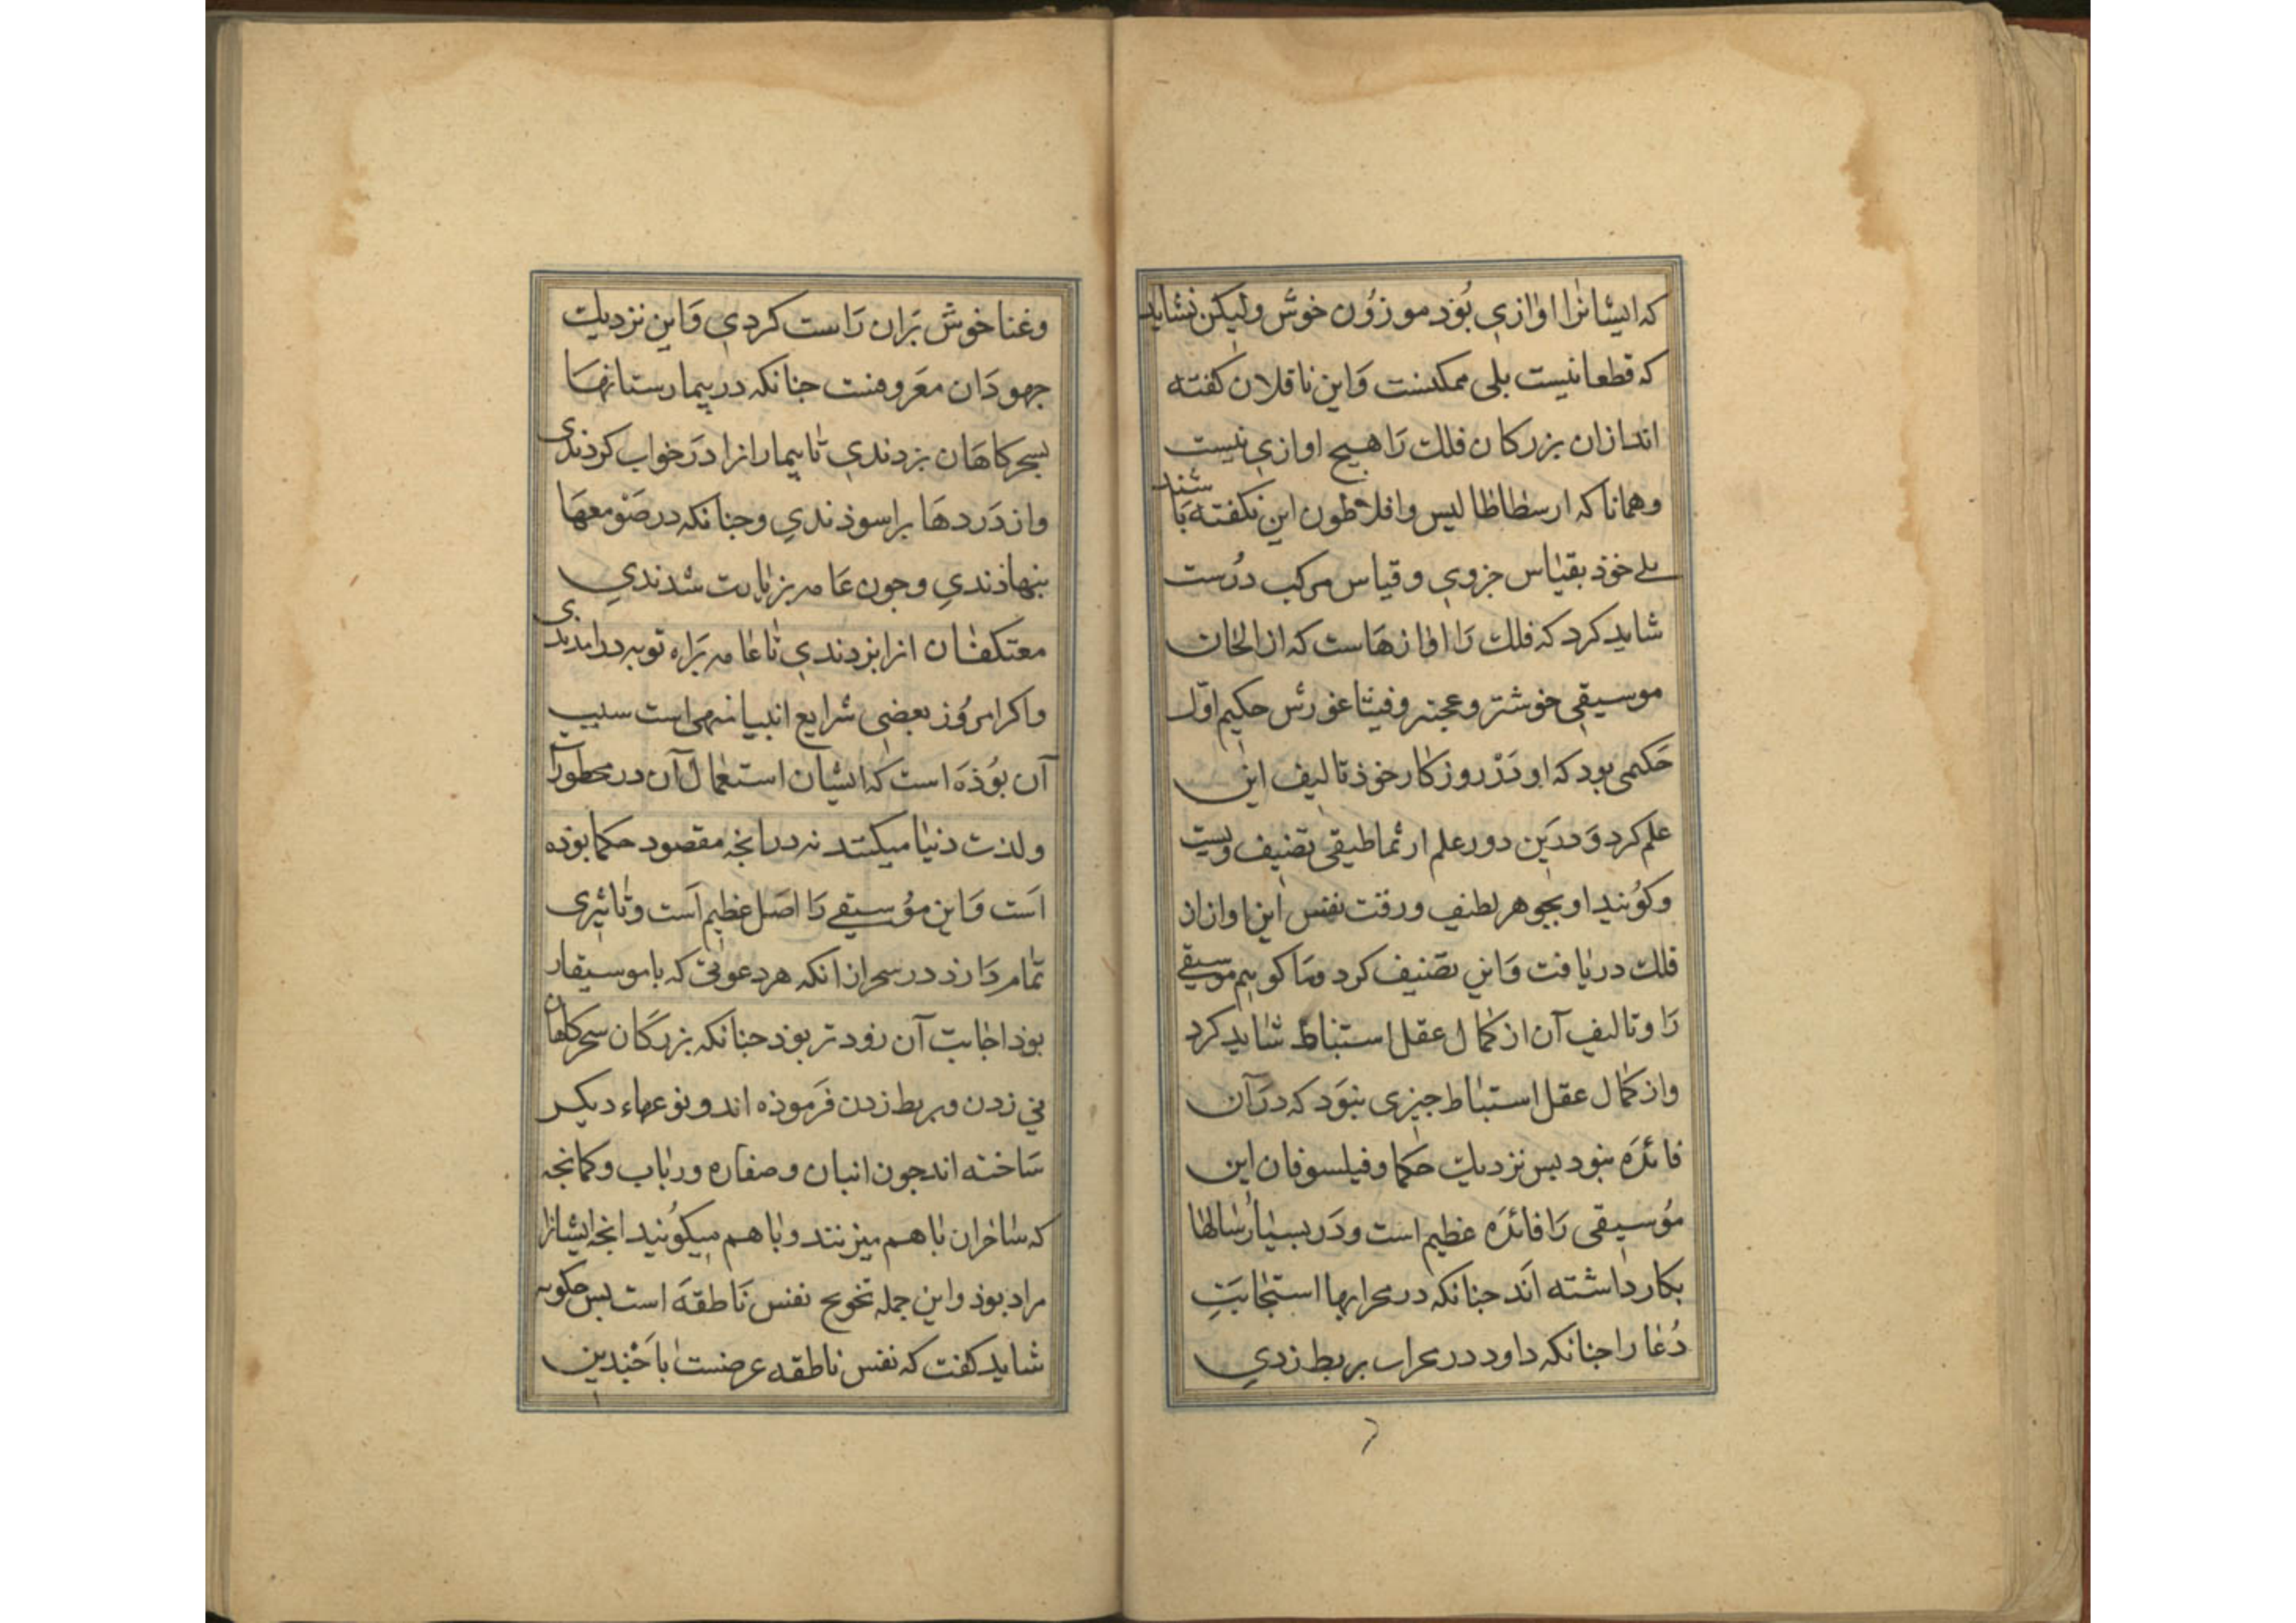 که ایشانرا اوازی بُوَد موزوُن خوش ولیکن نشاید
که قطعا نیست بلی ممکنست وَاین ناقلان کفته
اند ازان بزرکان فلك رَا هیچ اوازی نیست
وهمانا که ارسطاطالیس وافلاطون این نکفته باشند
بلے خوذ بقیاس جزوی و قیاس مرکب دُرست
شاید کرد که فلك رَا اوازهَاست که از الحان
موسیقی خوشتر وعجبتر وفیثاغورَس حکیم اوّل
حَکیمی بود که او دَرْ روزکار خوذ تالیف این
علم کرد وَ دَرین دور علم ارثماطیقی تصنیف ویست
وکوُیند او بجوهر لطیف ورقت نفس این اواز از
فلك دریافت وَاین تصَنیف کرد وما کوییم موسیقے
رَا وتالیف آن از کمال عقل استنباط شاید کرد
واز کمال عقل استنباط جیزی نبوَد که درَآن
فائدَه نبود بس نزدیك حکما وفیلسوفان این
موُسیقی رَا فائدَه عظیم است ودَر بسیاُر سالها
بکار داشته اَند جنانکه در محرابها استجابَتِ
دُعا را جنانکه داود در محراب بربط زدی
وغنا خوش بَران رَاست کردی وَاین نزدیك
جهودَان معَروفست جنانکه در بیمارستانهَا
بسحرکاهَان بزدندی تا بیمارانرا درَ خواب کردندی
واز دَردهَا براسوذندی وجنانکه در صَومعهَا
بنهاذندی وجون عَامه بزیارت شدندی
معتکفان انرا بزدندی تا عامه برَاه توبه در امدندی
واکر امروُز بعضی شرایع انبیا نهی است سبب
آن بوُذَه است که ایشان استعمال آن در محظورآ
ولذت دنیا میکنند نه در انجه مقصود حکما بوذه
اَست وَاین موُسیقے رَا اصَل عظیم اَست وتاثیری
تمام دَارذ در سحر ازانکه هر دعوتی که با موسیقار
بوذ اجابت آن زودتر بوذ جنانکه بزرکَان سحرکاهان
نی زدن وبربط زدن فرَموذه اند و نوعهاء دیکر
سَاخته اند جون انبان و صفاره ورباب وکمانجه
که ساخران باهم میزنند و باهم میکوُیند انجه ایشانرا
مراد بوذ واین جمله تخویج نفس نَاطقهَ است بس جکونه
شاید کفت که نفس ناطقه عرضست باجَندین